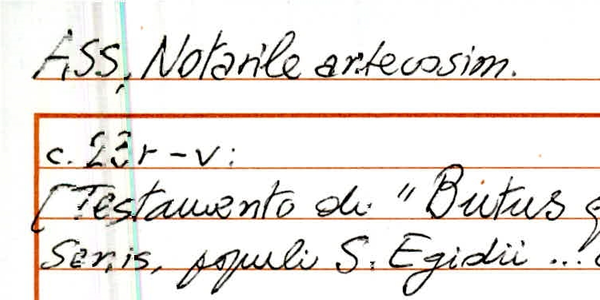 ASS, Notarile antecosim.
c. 23r-v:
[Testamento di "Butus
Senis, populi S. Egidii ...